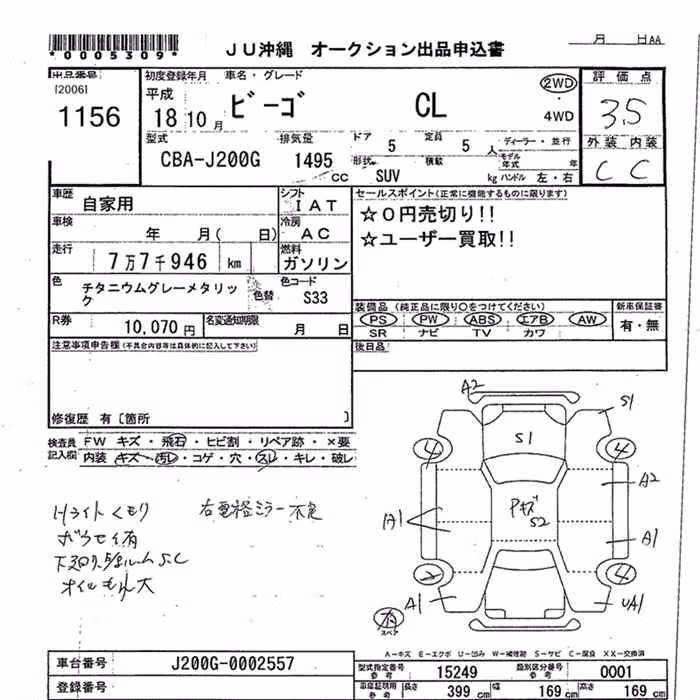 *0005309*
JU沖縄 オークション出品申込書
月 日AA
出品番号 初度登録年月 車名・グレード 評価点
[2006] 平成 2WD
1156 18 10月 ビーゴ CL 4WD 3.5
型式 排気量 ドア 定員 ディーラー・並行 外装 内装
CBA-J200G 1495 cc 5 5人 モデル年式 年
形状 SUV 積載 kg ハンドル 左・右 C C
車歴 自家用 シフト IAT セールスポイント(正常に機能するものに限ります)
車検 年 月( 日) 冷房 AC ☆0円売切り!!
走行 7万7千946km 燃料 ガソリン ☆ユーザー買取!!
色 チタニウムグレーメタリッ
ク 色替 色コード S33
装備品 (純正品に限り○をつけてください) 新車保証書
R券 10,070円 名変通知期限 月 日 PS PW ABS エアB AW 有・無
SR ナビ TV カワ
注意事項申告欄(不具合内容等は具体的に記入して下さい) 後日品
修復歴 有〔箇所 〕
検査員 FW キズ・飛石・ヒビ割・リペア跡・×要
記入欄 内装 キズ・汚レ・コゲ・穴・スレ・キレ・破レ
Hライトくもり 右電格ミラー不良
オイルもれ大
A2 S1
S1
4 4
A2
Pキズ
S2
A1 A1
2 4
A1 UA1
スペア
A-キズ E-エクボ U-凹み W-補修跡 S-サビ C-腐食 XX-交換済
車台番号 J200G-0002557 型式指定番号 参考 15249 類別区分番号 参考 0001
登録番号 車庫証明用 参考 長さ 399cm 幅 169cm 高さ 169cm